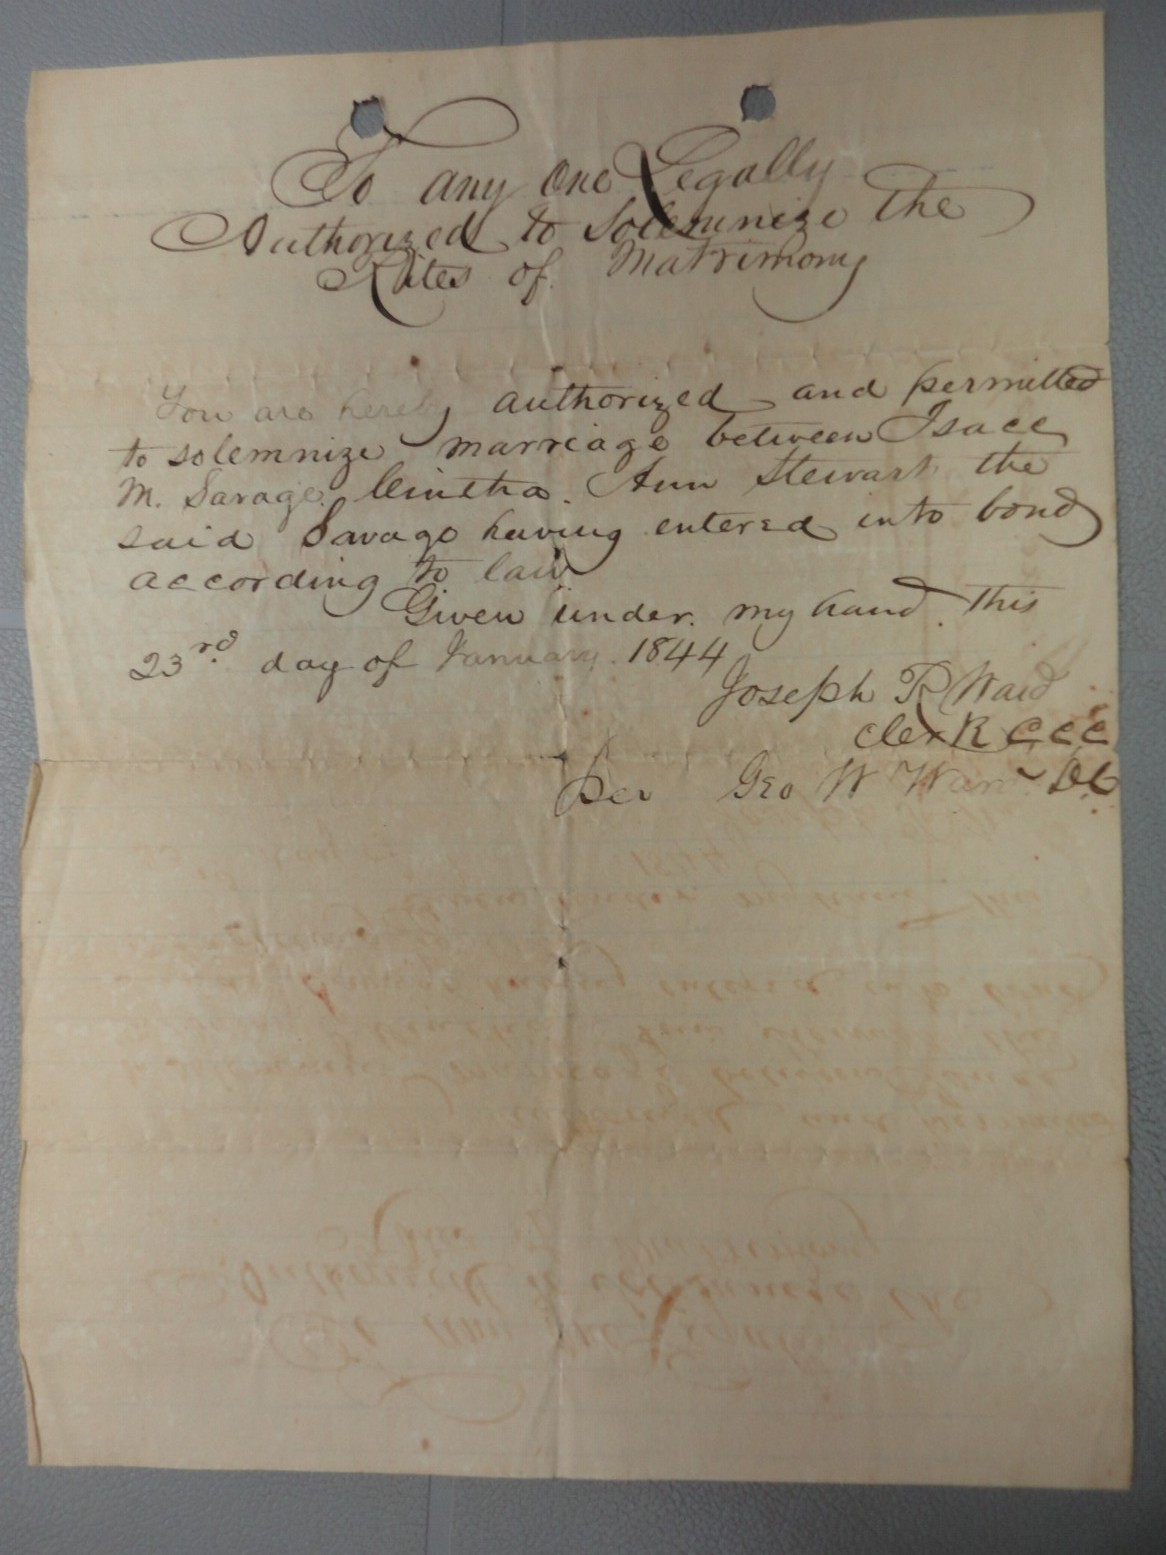 To any one Legally
Authorized to Solemnize the
Rites of Matrimony
You are hereby authorized and permitted
to solemnize marriage between Isace
M. Savage Cintha. Ann Stewart the
said Savage having entered into bond
according to law
Given under my hand this
23rd. day of January. 1844
Joseph R Ward
Clerk CCC
per Geo W Ward DC